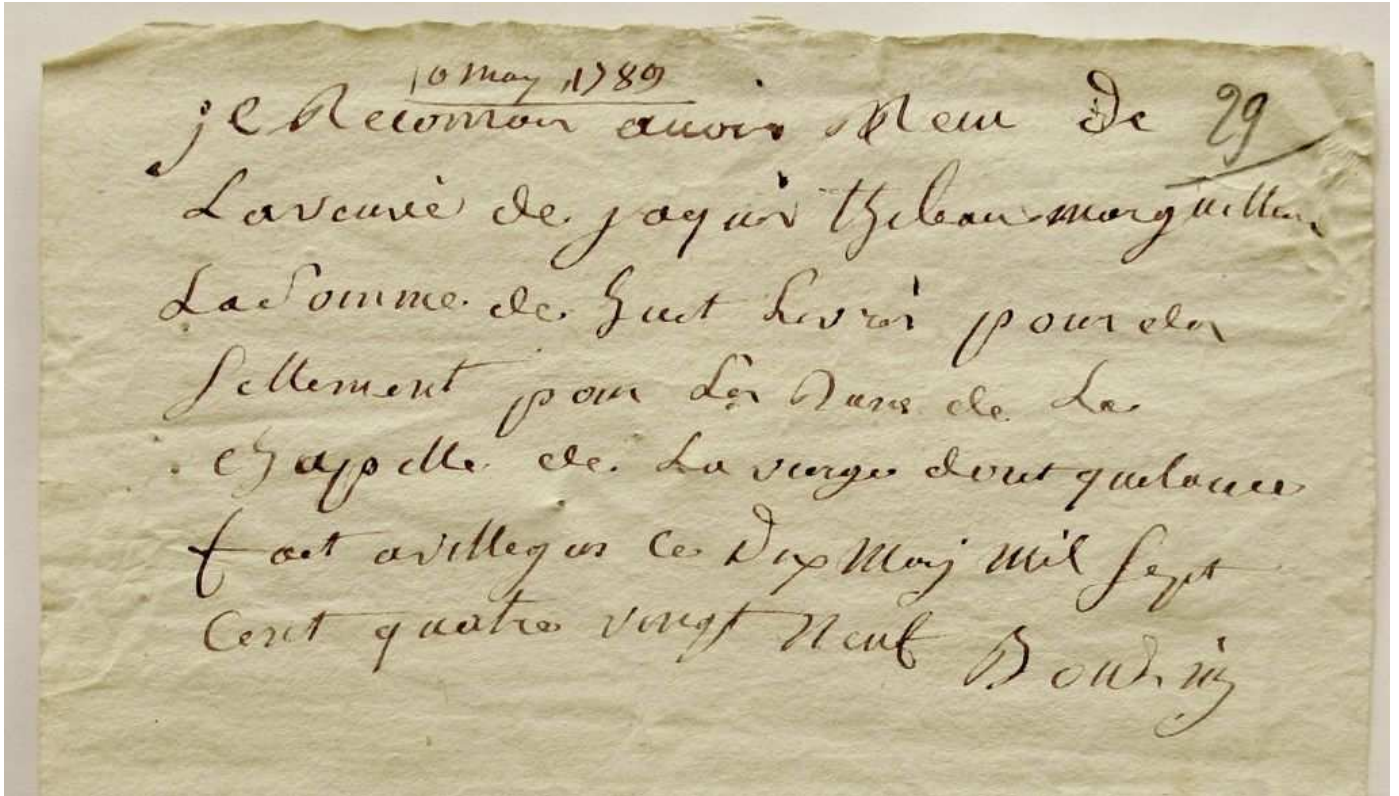 10 may 1789
je Reconnoi avoir Receu de 29
La veuve de jaquis thibau marguillier
La Somme de huit Livres pour des
sellement pour Les de La
chapelle de La vierge dont quitance
fait a ce Dix May mil sept
Cent quatre vingt neuf